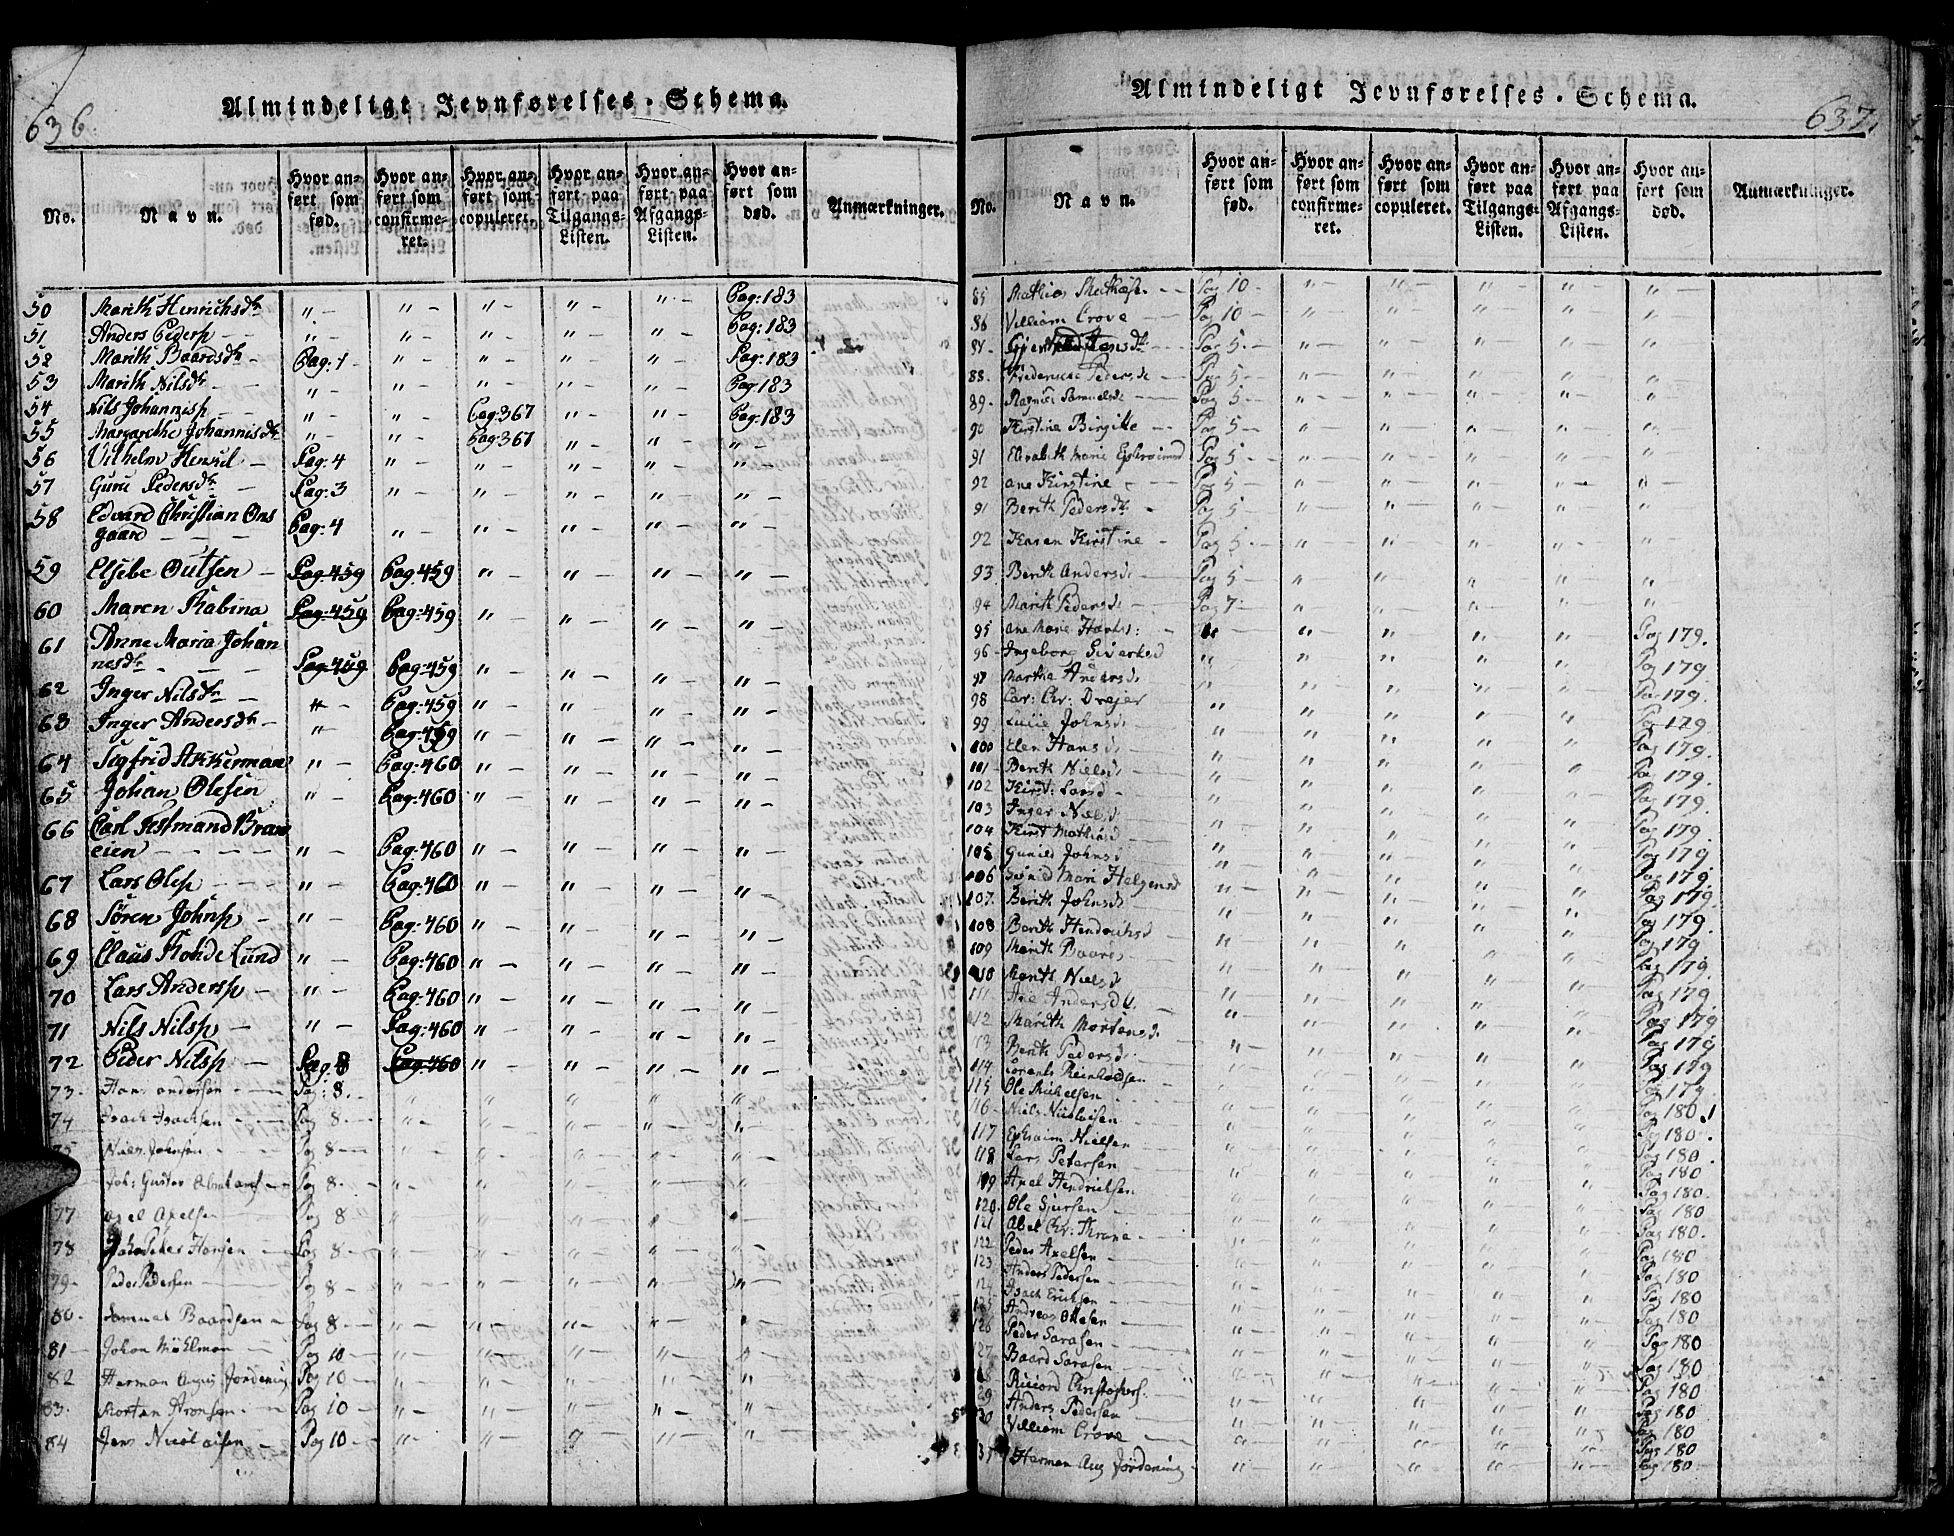 636.
Almindeligt Jevnførelses-Schema.
No.
Navn.
Hvor anført som fød.
Hvor anført som confirmeret.
Hvor anført som copuleret.
Hvor anført paa Tilgangs-Listen.
Hvor anført paa Afgangs-Listen.
Hvor anført som død.
Anmærkninger.
50 Marith Henrichsdr " – " – " – " – " – Pag: 183
51 Anders Pedersp " – " – " – " – " – Pag: 183
52 Marith Baardsdr – Pag: 1 – " – " – " – " – Pag: 183
53 Marith Nilsdr – " – " – " – " – " – Pag 183
54 Nils Johannisp – " – " – Pag: 367 " – " – Pag: 183
55 Margarethe Johannisdr " – " – Pag: 367 " – " – " –
56 Vilhelm Hensil – Pag: 4 " – " – " – " – " –
57 Guru Pedersdr – Pag: 3 " – " – " – " – " –
58 Edvard Christian Ons
gaard – – – Pag: 4 " – " – " – " – " –
59 Elsebe Outsen – Pag: 459 Pag: 459 " – " – " – " –
60 Maren Rabina Pag: 459 Pag: 459 " – " – " – " –
61 Anne Maria Johan
nesdr – – – Pag: 459 Pag: 459 " – " – " – " –
62 Inger Nilsdr – " – Pag: 459 " – " – " – " –
63 Inger Andersdr – " – Pag: 459 " – " – " – " –
64 Sigfrid Akkerman " – Pag: 460 " – " – " – " –
65 Johan Olesen " – Pag: 460 " – " – " – " –
66 Carl Istmand
eien – – – – " – Pag: 460 " – " – " – " –
67 Lars Olsp – – – " – Pag: 460 " – " – " – " –
68 Sören Johnsp – " – Pag: 460 " – " – " – " –
69 Claus Rohde Lund " – Pag: 460 " – " – " – " –
70 Lars Andersp – " – Pag: 460 " – " – " – " –
71 Nils Nilsp – " – Pag: 460 " – " – " – " –
72 Peder Nilsp – Pag. 8 Pag: 460 " – " – " – " –
73. Hans andersen – Pag: 8. – " " – " – " – " –
74 Isach Isachsen – Pag 8 – " – " – " – " – " –
75 Niels Johnsen – Pag 8 – " – " – " – " – " –
Joh: Gustav – Pag 8. – " – " – " – " – " –
77 axel Axelsen Pag 8 " – " – " – " – " –
78 Joh Peter Hansen – Pag 8 – " – " – " – " – " –
79 – Peder Pedersen – Pag 8 – " – " – " – " – " –
80. Samuel Baardsen – Pag 8 – " – " – " – " – " –
81 – Johan Mühlman – Pag 10 – " – " – " – " – " –
82 Herman Augus Jordening Pag 10 – " – " – " – " – " –
83. Morten Aronsen – Pag 10 – " – " – " – " – " –
84 Jens Nicolaisen – Pag 10 – " – " – " – " – " –
637.
Almindeligt Jevnførelses-Schema.
No.
Navn.
Hvor anført som fød.
Hvor anført som confirmeret.
Hvor anført som copuleret.
Hvor anført paa Tilgangs-Listen.
Hvor anført paa Afgangs-Listen.
Hvor anført som død.
Anmærkninger.
85 Mathias – Pag 10 – " – " – " – " – " –
86 Villiam Crove – Pag 10 – " – " – " – " – " –
87 – Hansdr – Pag 5. – " – " – " – " – " –
88. Fredericke Pedersd – Pag 5 – " – " – " – " – " –
89. Ragnil Samuelsd – Pag 5 – " – " – " – " – " –
90 Kirstine Birgitte – Pag 5 – " – " – " – " – " –
91 Elisabeth Marie Pag 5 – " – " – " – " – " –
92 ane Kirstine – Pag 5 – " – " – " – " – " –
91 Berith Pedersdr – Pag 5 – " – " – " – " – " –
92 Karen Kirstine – Pag 5 – " – " – " – " – " –
93 Berith Andersd – Pag 5 – " – " – " – " – " –
94 Marith Pedersd – Pag 7 – " – " – " – " – " –
95 ane Marie Hans: – " – " – " – " – " – Pag 179.
96 – Ingeborg Siverksd " – " – " – " – " – Pag 179
97 Marthe Andersd " – " – " – " – " – Pag 179.
98 Car: Chr: Drejer " – " – " – " – " – Pag 179
99 Lucie Johnsd " – " – " – " – " – Pag 179.
100 Elen Hansd " – " – " – " – " – Pag 179.
101 – Berith Nielsd " – " – " – " – " – Pag 179.
102 Kirst: Larsd – " – " – " – " – " – Pag 179.
103 Inger Nielsd " – " – " – " – " – Pag 179.
104 Kirst Mathiasd " – " – " – " – " – Pag 179.
105 Gunild Johnsd " – " – " – " – " – Pag 179.
106 Mari Helgensd " – " – " – " – " – Pag 179.
107. Berith Johnsd " – " – " – " – " – Pag 179
108 Berith Hendrichsd " – " – " – " – " – Pag 179.
109 Marith Baards " – " – " – " – " – Pag 179.
110 Marith Nielsd " – " – " – " – " – Pag 179.
111 Ane Andersd " – " – " – " – " – Pag 179
112 Marith Mortensd " – " – " – " – " – Pag 179
113 Berith Pedersd " – " – " – " – " – Pag 179.
114 Lorents Reinholdsen " – " – " – " – " – Pag 180.
115 Ole Michelsen " – " – " – " – " – Pag 180.
116 – Niels Nicolaisen " – " – " – " – " – Pag 180.
117 Ephraim Nielsen " – " – " – " – " – Pag 180
118 Lars Petersen " – " – " – " – " – Pag 180.
119 Axel Hendrichsen " – " – " – " – " – Pag 180
120. Ole Sjursen – " – " – " – " – " – Pag 180.
121 Abel Chr. Thrane – " – " – " – " – " – Pag 180
122 Peder Axelsen – " – " – " – " – " – Pag 180
123 Anders Pedersen – " – " – " – " – " – Pag 180
124 Isach Erichsen – " – " – " – " – " – Pag 180
125 Andreas Ottesen – " – " – " – " – " – Pag 180
126 Peder Sarasen – " – " – " – " – " – Pag 180
127 Baard Sarasen – " – " – " – " – " – Pag 180
Richard Christophers. " – " – " – " – " – Pag 180
29 Anders Pedersen – " – " – " – " – " – Pag 180
30 Villiam Crove – " – " – " – " – " – Pag 180
Herman Aug Jördening " – " – " – " – " – Pag 180